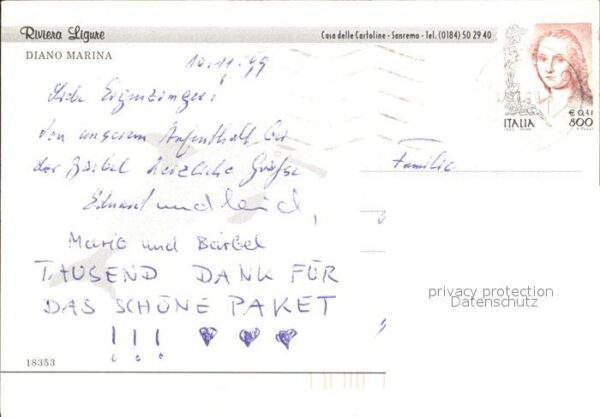 Riviera Ligure
Casa delle Cartoline - Sanremo - Tel. (0184) 50 29 40
DIANO MARINA
10.11.99
Liebe
von unserem Aufenthalt bei
der Bärbel herzliche Grüße
Eduard und
Mario und Bärbel
TAUSEND DANK FÜR
DAS SCHÖNE PAKET
!!! ♥ ♥ ♥
18353
Familie
€ 0,41
ITALIA 800
privacy protection
Datenschutz